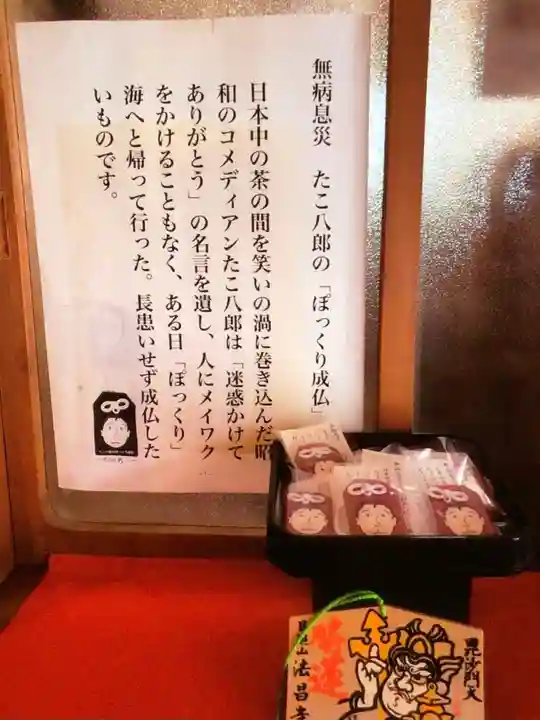 無病息災　たこ八郎の「ぽっくり成仏」
日本中の茶の間を笑いの渦に巻き込んだ昭
和のコメディアンたこ八郎は「迷惑かけて
ありがとう」の名言を遺し、人にメイワク
をかけることもなく、ある日「ぽっくり」
海へと帰って行った。長患いせず成仏した
いものです。
毘沙門天
開運
法昌寺